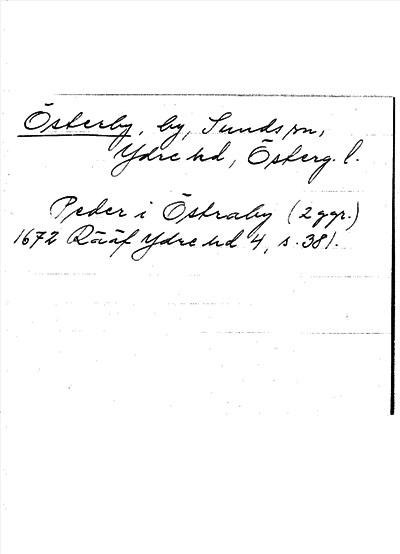 Österby, by, Sunds sn,
Ydre hd, Österg. l.
Peder i Östraby (2 ggr.)
1672 Rääf Ydre hd 4, s. 381.